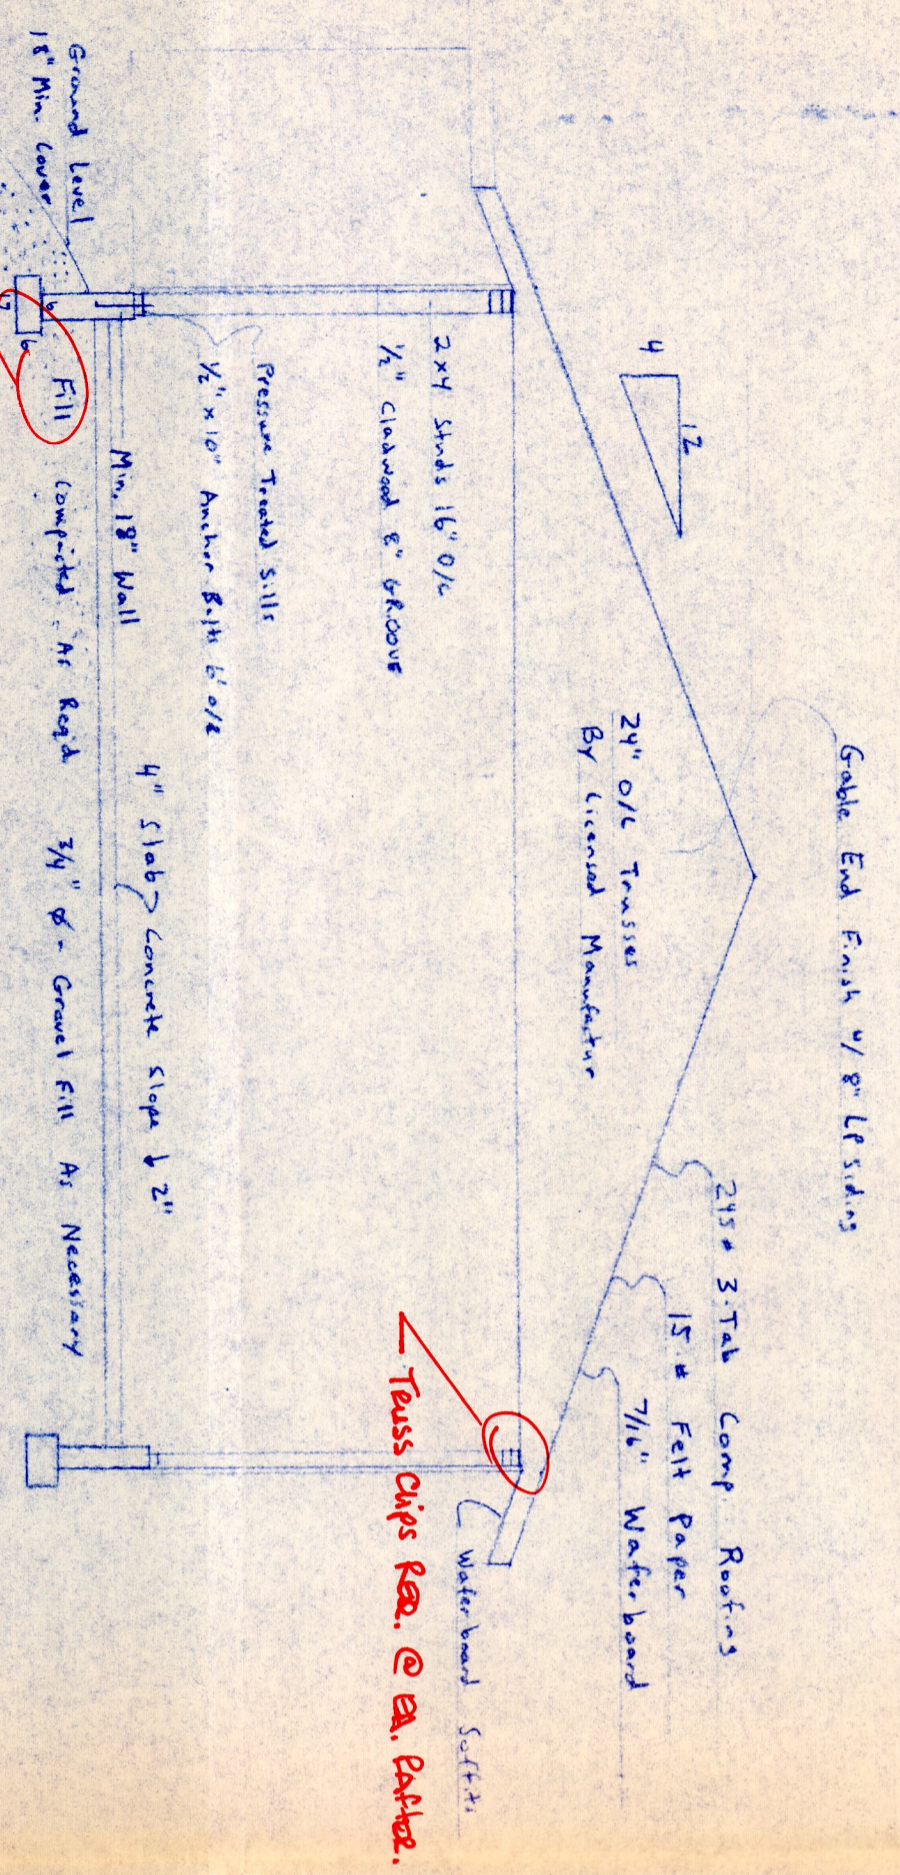 Gable End Finish w/ 8" LP siding
245 # 3-Tab Comp. Roofing
15 # Felt Paper
7/16" Waferboard
4
12
24" O/C Trusses
By Licensed Manufactur
Waferboard Soffits
Truss Clips REQ. @ EA. RAFTER.
2x4 Studs 16" O/C
1/2" Cladwood 8" GROOVE
Pressure Treated Sills
1/2" x 10" Anchor Bolts 6' O/C
4" Slab Concrete Slope ↓ 2"
Min. 18" Wall
Ground Level
18" Min. Cover
6
6
Fill Compacted As Req'd 3/4" ø - Gravel Fill As Necessary